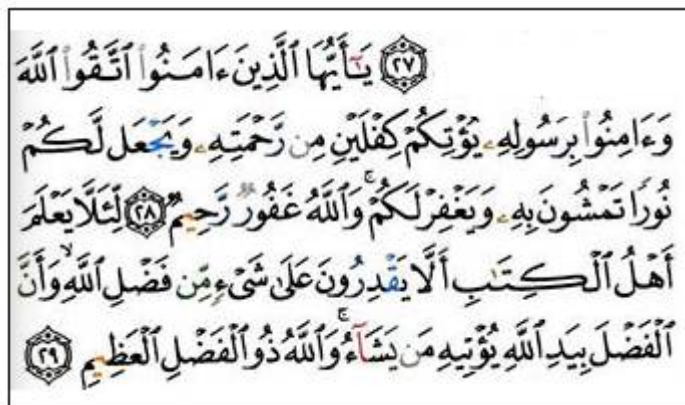 ۝٢٧ يَـٰٓأَيُّهَا ٱلَّذِينَ ءَامَنُوا۟ ٱتَّقُوا۟ ٱللَّهَ
وَءَامِنُوا۟ بِرَسُولِهِۦ يُؤْتِكُمْ كِفْلَيْنِ مِن رَّحْمَتِهِۦ وَيَجْعَل لَّكُمْ
نُورًا تَمْشُونَ بِهِۦ وَيَغْفِرْ لَكُمْ ۚ وَٱللَّهُ غَفُورٌ رَّحِيمٌ ۝٢٨ لِّئَلَّا يَعْلَمَ
أَهْلُ ٱلْكِتَـٰبِ أَلَّا يَقْدِرُونَ عَلَىٰ شَىْءٍ مِّن فَضْلِ ٱللَّهِ ۙ وَأَنَّ
ٱلْفَضْلَ بِيَدِ ٱللَّهِ يُؤْتِيهِ مَن يَشَآءُ ۚ وَٱللَّهُ ذُو ٱلْفَضْلِ ٱلْعَظِيمِ ۝٢٩